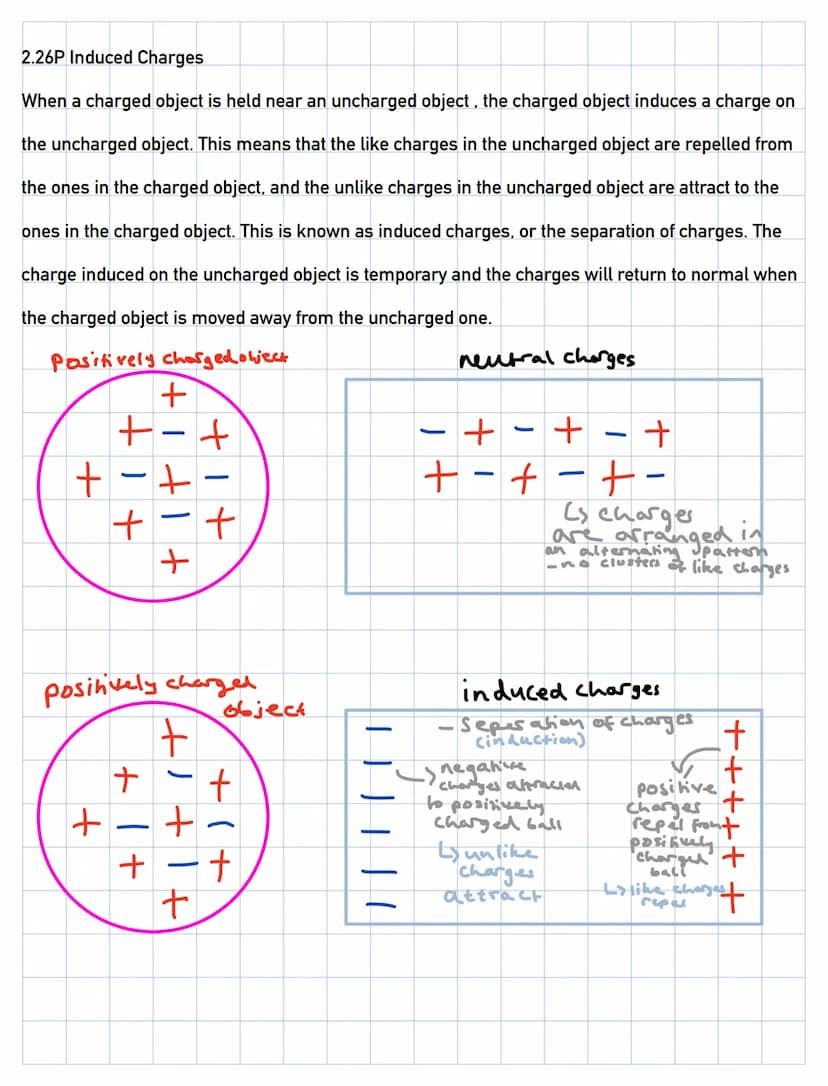 2.26P Induced Charges
When a charged object is held near an uncharged object , the charged object induces a charge on
the uncharged object. This means that the like charges in the uncharged object are repelled from
the ones in the charged object, and the unlike charges in the uncharged object are attract to the
ones in the charged object. This is known as induced charges, or the separation of charges. The
charge induced on the uncharged object is temporary and the charges will return to normal when
the charged object is moved away from the uncharged one.
positively charged object
+
+ − +
+ − + −
+ − +
+
neutral charges
− + − + − +
+ − + − + −
↳ charges
are arranged in
an alternating pattern
- no clusters of like charges
positively charged
object
+
+ − +
+ − + −
+ − +
+
induced charges
−
−
−
−
−
−
- Seperation of charges
(induction)
negative
charges attracted
to positively
charged ball
↳ unlike
charges
attract
positive
charges
repel from
positively
charged
ball
↳ like charges
repel
+
+
+
+
+
+